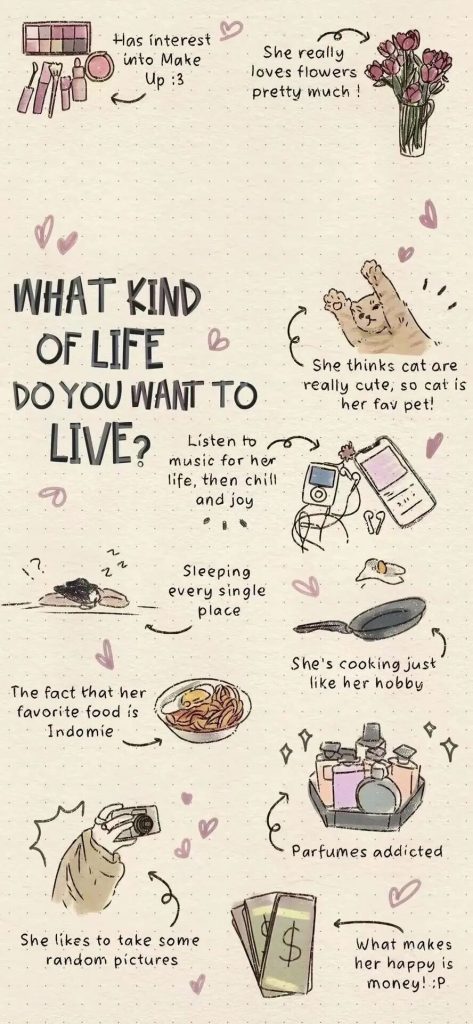 Has interest
into Make
Up :3
She really
loves flowers
pretty much !
WHAT KIND
OF LIFE
DO YOU WANT TO
LIVE?
She thinks cat are
really cute, so cat is
her fav pet!
Listen to
music for her
life, then chill
and joy
!?
z z z
Sleeping
every single
place
She's cooking just
like her hobby
The fact that her
favorite food is
Indomie
Parfumes addicted
She likes to take some
random pictures
$
$
What makes
her happy is
money! :P